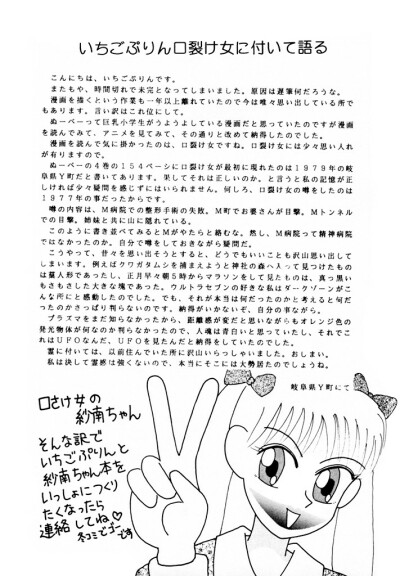 いちごぷりん口裂け女に付いて語る
こんにちは、いちごぷりんです。
またもや、時間切れで未完となってしまいました。原因は遅筆何だろうな。
漫画を描くという作業も一年以上離れていたので今は唯々思い出している所で
もあります。言い訳はこれ位にして。
ぬーべーって巨乳小学生がうようよしている漫画だと思っていたのですが漫画
を読んでみて、アニメを見てみて、その通りと改めて納得したのでした。
漫画を読んで気に掛かったのは、口裂け女ですね。口裂け女には少々思い入れ
が有りますので。
ぬーべーの4巻の154ページに口裂け女が最初に現れたのは1979年の岐
阜県Y町だと書いてあります。果してそれは正しいのか。と言うと私の記憶が正
しければ少々疑問を感じずにはいられません。何しろ、口裂け女の噂をしたのは
1977年の事だったからです。
噂の内容は、M病院での整形手術の失敗。M町でお婆さんが目撃。Mトンネル
での目撃。姉妹と共に山に隠れている。
このように書き並べてみるとMがやたらと絡むな。然し、M病院って精神病院
ではなかったのか。自分で噂をしておきながら疑問だ。
こうやって、昔々を思い出そうとすると、どうでもいいことも沢山思い出して
しまいます。例えばクワガタムシを捕まえようと神社の森へ入って見つけたもの
は蚕人形であったし、正月早々朝5時からマラソンをして見たものは、真っ黒い
もさもさした大きな塊であった。ウルトラセブンの好きな私はダークゾーンがこ
んな所にと感動したのでした。でも、それが本当は何だったのかと考えると何だ
ったのかさっぱり判らないのです。納得がいかないぞ、自分の事ながら。
プラズマをまだ知らなかったから、距離感が変だと思いながらもオレンジ色の
発光物体が何なのか判らなかったので、人魂は青白いと思っていたし、それでこ
れはUFOなんだ、UFOを見たんだと納得をしていたのでした。
霊に付いては、以前住んでいた所に沢山いらっしゃいました。おしまい。
私は決して霊感は強くないので、本当にそこには大勢居たのでしょうね。
岐阜県Y町にて
口さけ女の
紗南ちゃん
そんな訳で
いちごぷりんと
紗南ちゃん本を
いっしょにつくり
たくなったら
連絡してね♡
冬コミでゴーです